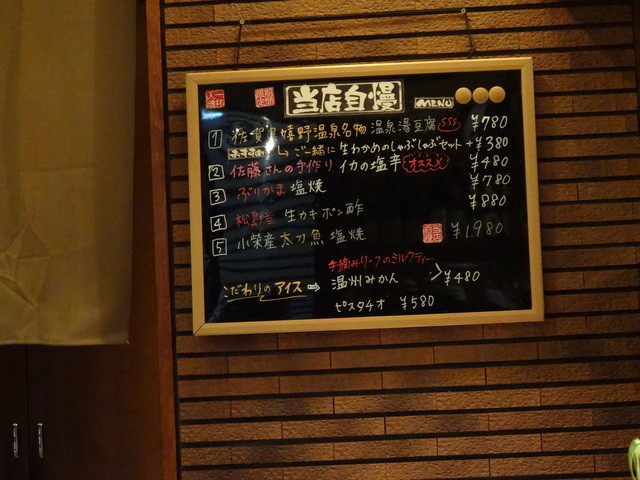 当店自慢 MENU
1 佐賀県嬉野温泉名物 温泉湯豆腐 ¥780
ご一緒に 生わかめのしゃぶしゃぶセット +¥380
2 佐藤さんの手作り イカの塩辛 オススメ ¥480
3 ぶりかま 塩焼 ¥780
4 松島産 生カキポン酢 ¥880
5 小柴産 太刀魚 塩焼 ¥1,980
手摘みリーフのミルクティー
こだわりのアイス → 温州みかん ¥480
ピスタチオ ¥580